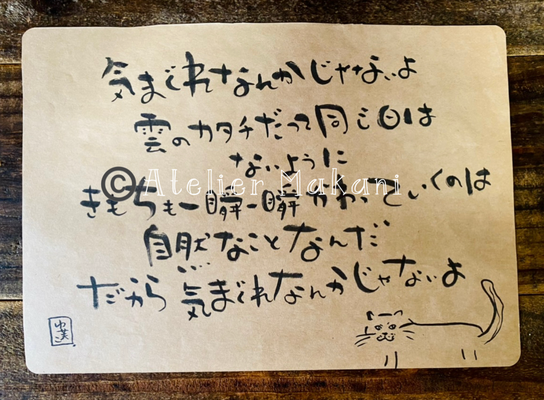 気まぐれなんかじゃないよ
雲のカタチだって同じ日は
ないように
©Atelier Makani
きもちも一瞬一瞬かわっていくのは
自然なことなんだ
だから 気まぐれなんかじゃないよ